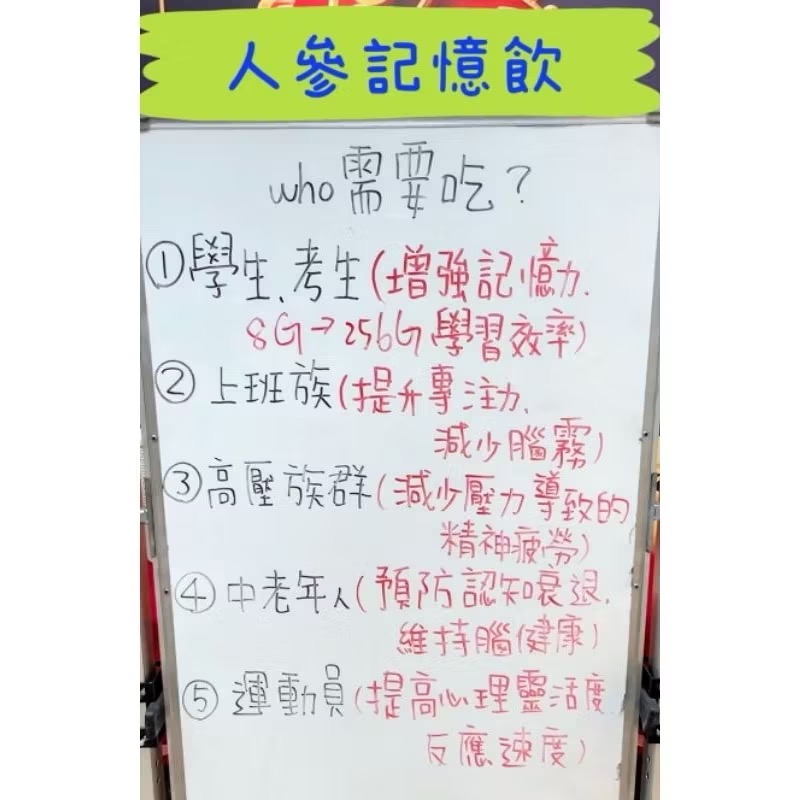 人參記憶飲
who需要吃?
①學生、考生(增強記憶力、
8G→256G學習效率)
②上班族(提升專注力、
減少腦霧)
③高壓族群(減少壓力導致的
精神疲勞)
④中老年人(預防認知衰退、
維持腦健康)
⑤運動員(提高心理靈活度
反應速度)